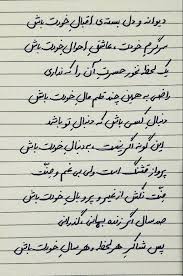 دیوانه و دل بسته‌ی اقبال خودت باش
سرگرم خودت، عاشق احوال خودت باش
یک لحظه نخور حسرت آن را که نداری
راضی به همین چند قلم مال خودت باش
دنبال کسی باش که دنبال تو باشد
این گونه اگر نیست، به دنبال خودت باش
پرواز قشنگ است ولی بی غم و منّت
منّت نکش از غیر و پر و بال خودت باش
صد سال اگر زنده بمانی گذرانی
پس شاکر هر لحظه و هر سال خودت باش